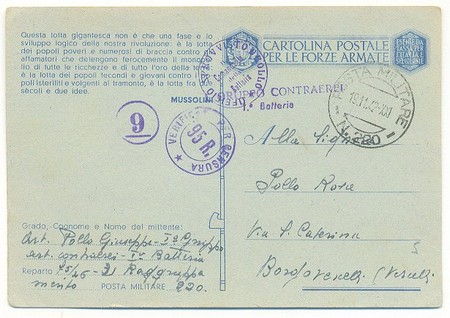 Questa lotta gigantesca non è che una fase e lo
sviluppo logico della nostra rivoluzione: è la lotta
dei popoli poveri e numerosi di braccia contro gli
affamatori che detengono ferocemente il monopolio
di tutte le ricchezze e di tutto l'oro della terra;
è la lotta dei popoli fecondi e giovani contro i po-
poli isteriliti e volgenti al tramonto, è la lotta fra due
secoli e due
MUSSOLINI
CARTOLINA POSTALE
PER LE FORZE ARMATE
GRUPPO CONTRAEREI
1.ª Batteria
POSTA MILITARE
N. 220
9
VERIFICATO PER CENSURA
95 R.
Alla
Pollo Rosa
Via S. Caterina
(Vercelli)
5
Grado, Cognome e Nome del mittente:
Art. Pollo Giuseppe - Iº Gruppo
art. contraerei - Iª Batteria
Reparto 75/46 - 31 Raggruppa
mento POSTA MILITARE 220.